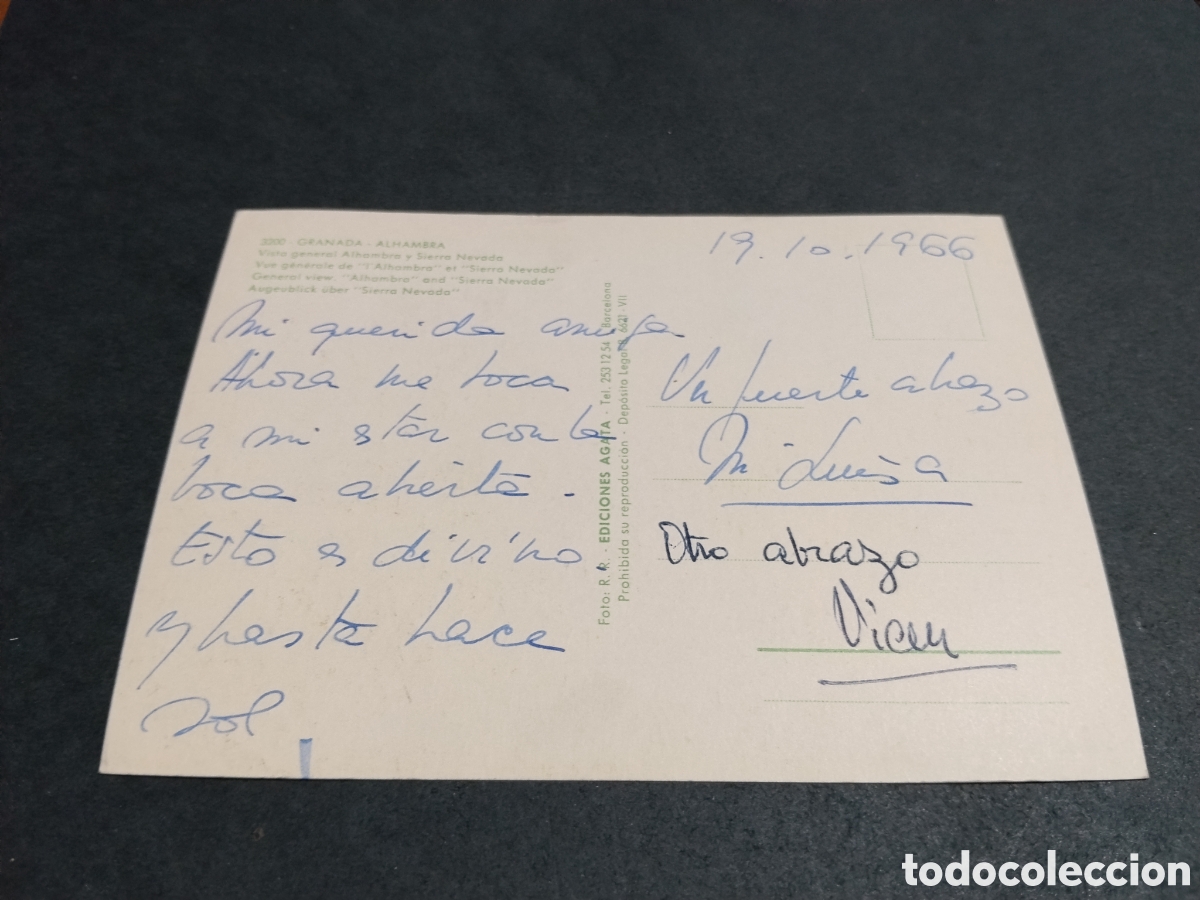 3200 - GRANADA - ALHAMBRA
Vista general Alhambra y Sierra Nevada
Vue générale de "l'Alhambra" et "Sierra Nevada"
General view. "Alhambra" and "Sierra Nevada"
Augeublick über "Sierra Nevada"
19.10.1966
Mi querida amiga
Ahora me toca
a mi estar con la
boca abierta.
Esto es divino
y hasta hace
sol
Foto: R. R. - EDICIONES AGATA - Tel. 253 12 54 - Barcelona
Prohibida su reproducción - Depósito Legal B. 6621-VII
Un fuerte abrazo
Mª Luisa
Otro abrazo
Vicen
todocoleccion